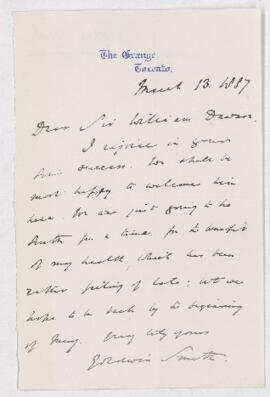 The Grange
Toronto.
March 13. 1887
Dear Sir William Dawson,
I rejoice in your
son's success. We shall be
most happy to welcome him
here. We are just going to the
South for a time for the benefit
of my health, which has been
rather failing of late; but we
hope to be back by the beginning
of May. Very truly yours
Goldwin Smith.